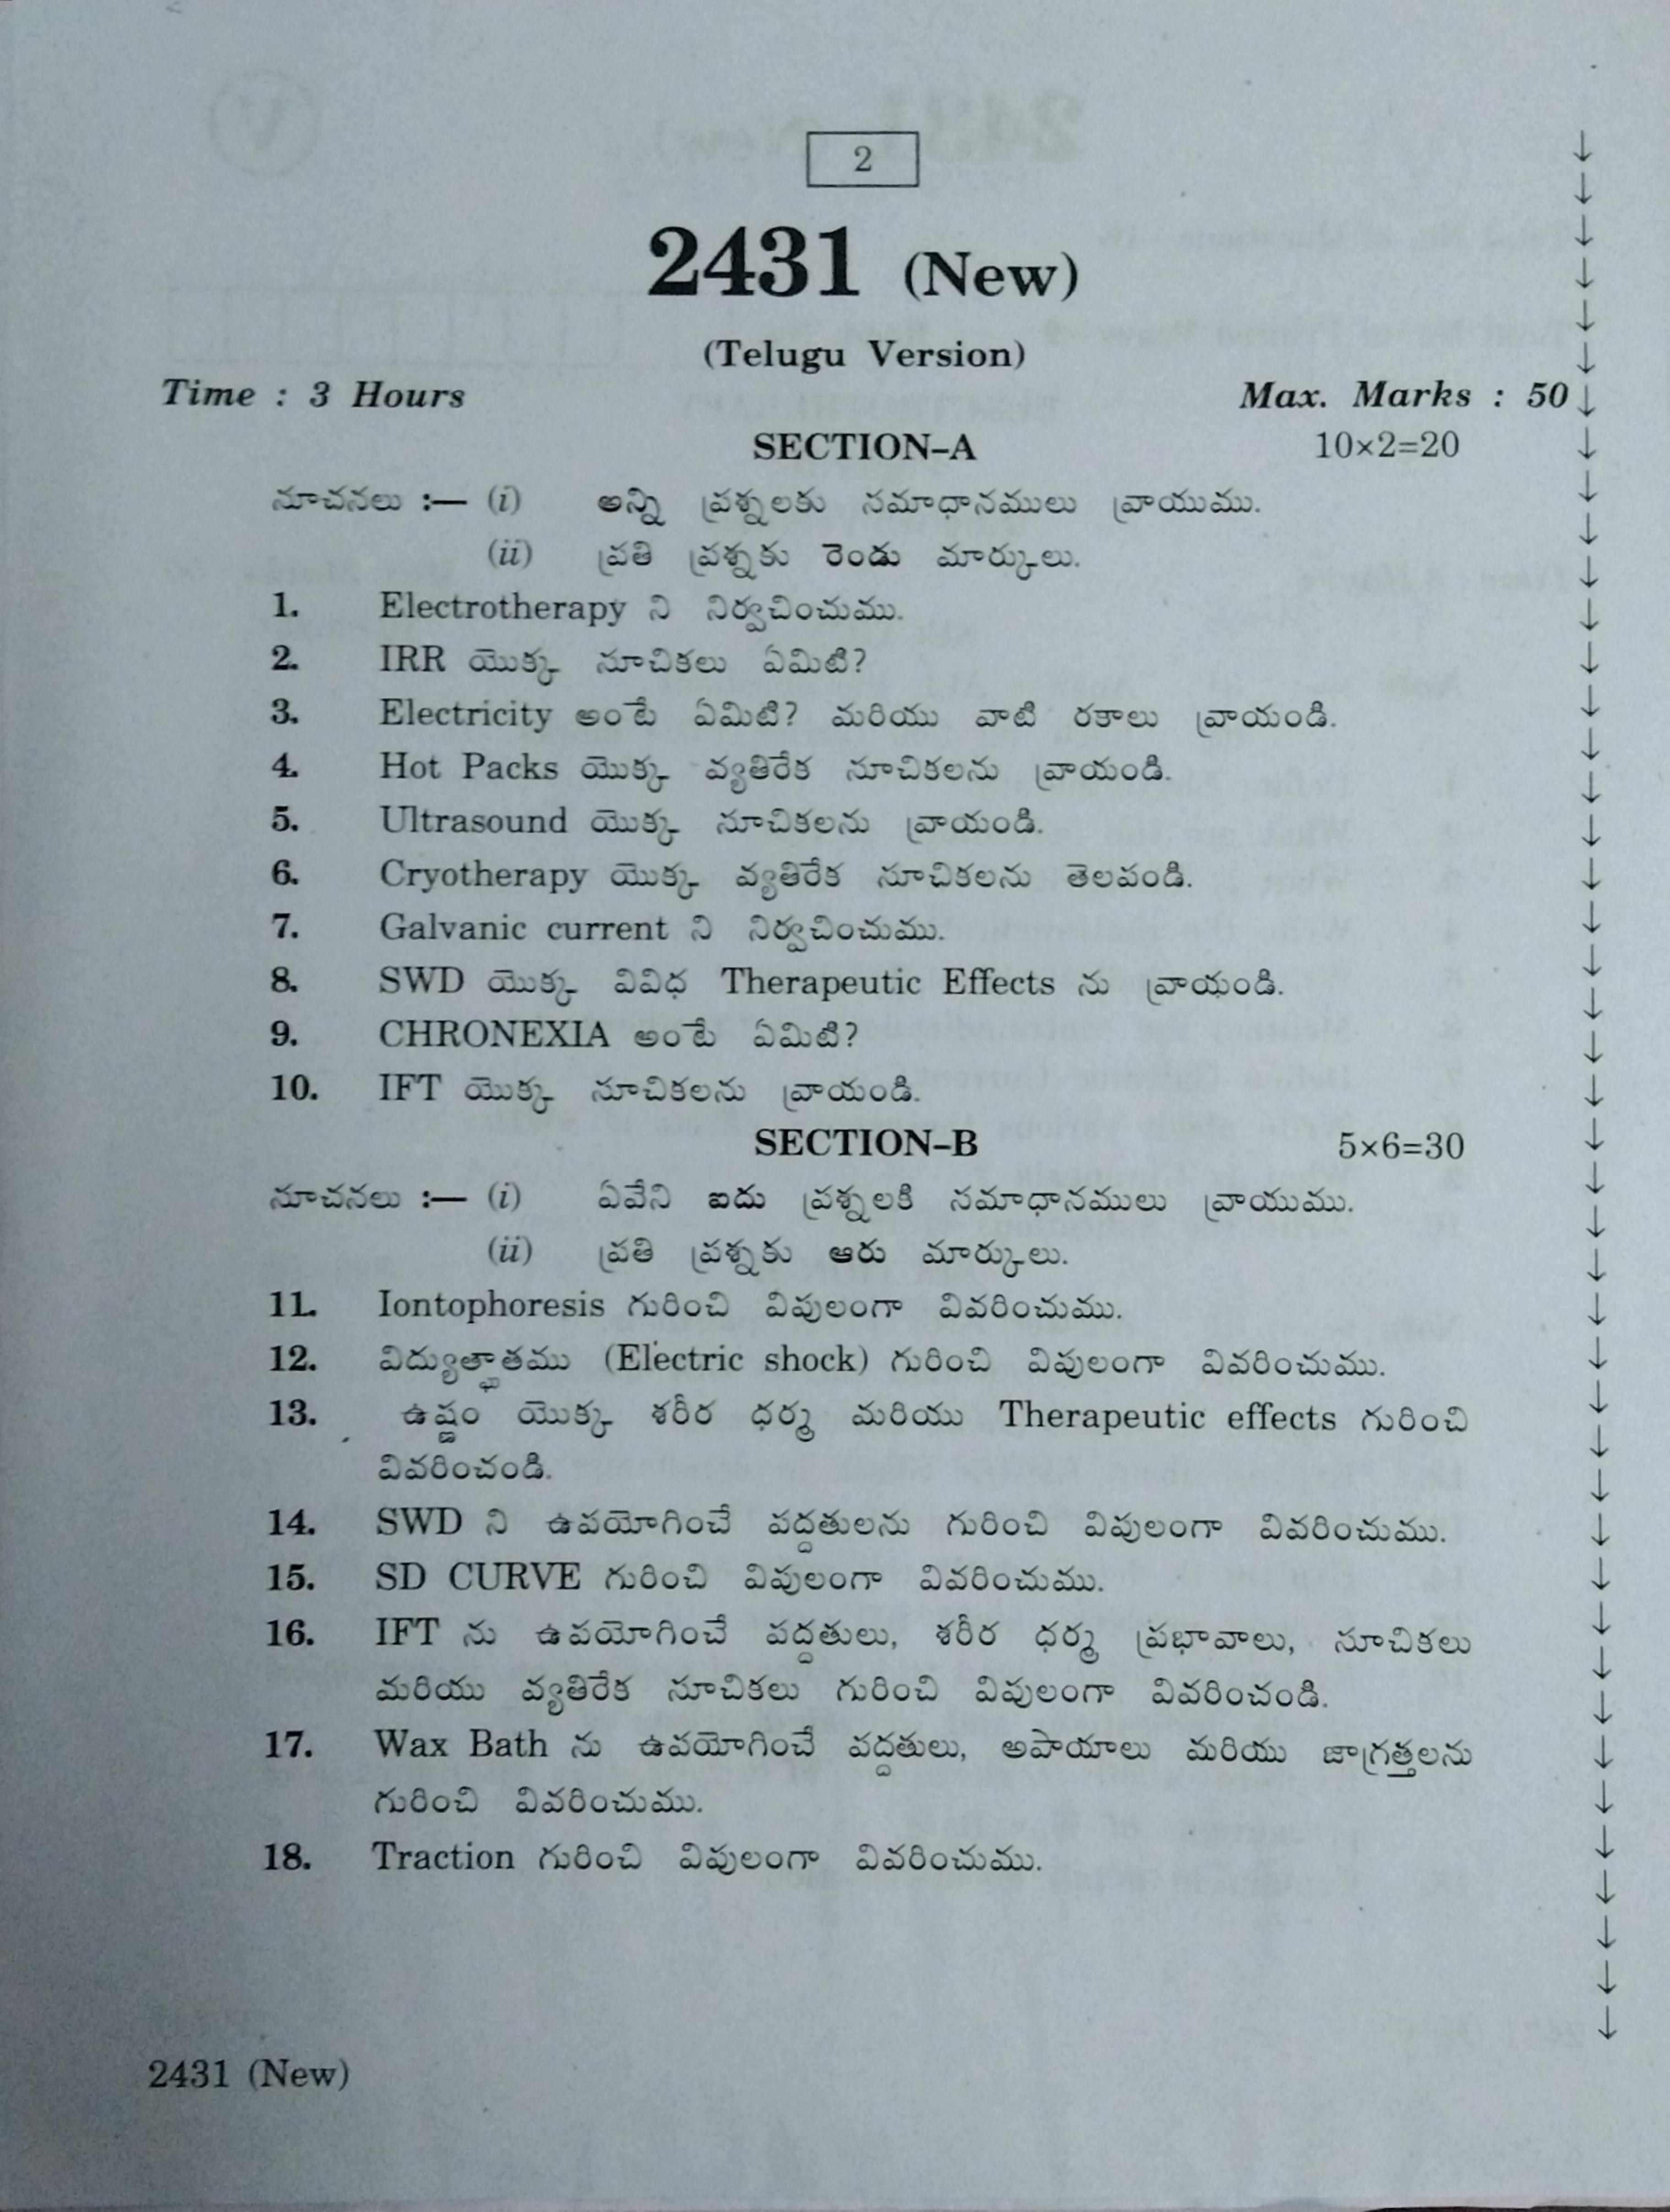 2
2431 (New)
(Telugu Version)
Time : 3 Hours Max. Marks : 50
SECTION–A 10×2=20
సూచనలు :— (i) అన్ని ప్రశ్నలకు సమాధానములు వ్రాయుము.
(ii) ప్రతి ప్రశ్నకు రెండు మార్కులు.
1. Electrotherapy ని నిర్వచించుము.
2. IRR యొక్క సూచికలు ఏమిటి?
3. Electricity అంటే ఏమిటి? మరియు వాటి రకాలు వ్రాయండి.
4. Hot Packs యొక్క వ్యతిరేక సూచికలను వ్రాయండి.
5. Ultrasound యొక్క సూచికలను వ్రాయండి.
6. Cryotherapy యొక్క వ్యతిరేక సూచికలను తెలపండి.
7. Galvanic current ని నిర్వచించుము.
8. SWD యొక్క వివిధ Therapeutic Effects ను వ్రాయండి.
9. CHRONEXIA అంటే ఏమిటి?
10. IFT యొక్క సూచికలను వ్రాయండి.
SECTION–B 5×6=30
సూచనలు :— (i) ఏవేని ఐదు ప్రశ్నలకి సమాధానములు వ్రాయుము.
(ii) ప్రతి ప్రశ్నకు ఆరు మార్కులు.
11. Iontophoresis గురించి విపులంగా వివరించుము.
12. విద్యుత్ఘాతము (Electric shock) గురించి విపులంగా వివరించుము.
13. ఉష్ణం యొక్క శరీర ధర్మ మరియు Therapeutic effects గురించి
వివరించండి.
14. SWD ని ఉపయోగించే పద్దతులను గురించి విపులంగా వివరించుము.
15. SD CURVE గురించి విపులంగా వివరించుము.
16. IFT ను ఉపయోగించే పద్దతులు, శరీర ధర్మ ప్రభావాలు, సూచికలు
మరియు వ్యతిరేక సూచికలు గురించి విపులంగా వివరించండి.
17. Wax Bath ను ఉపయోగించే పద్దతులు, అపాయాలు మరియు జాగ్రత్తలను
గురించి వివరించుము.
18. Traction గురించి విపులంగా వివరించుము.
2431 (New)